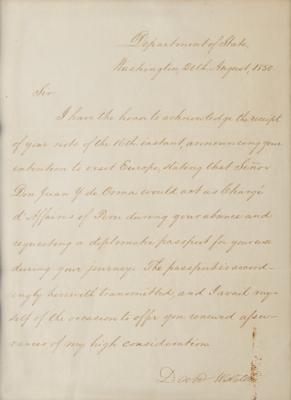 Department of State,
Washington, 20th August, 1850.
Sir
I have the honor to acknowledge the receipt
of your note of the 16th instant, announcing your
intention to visit Europe, stating that Señor
Don Juan Y. de Osma would act as Chargé
d'Affaires of Peru during your absence and
requesting a diplomatic passport for your use
during your journey. The passport is accord-
ingly herewith transmitted, and I avail my-
self of the occasion to offer you renewed assu-
rances of my high consideration.
Daniel Webster